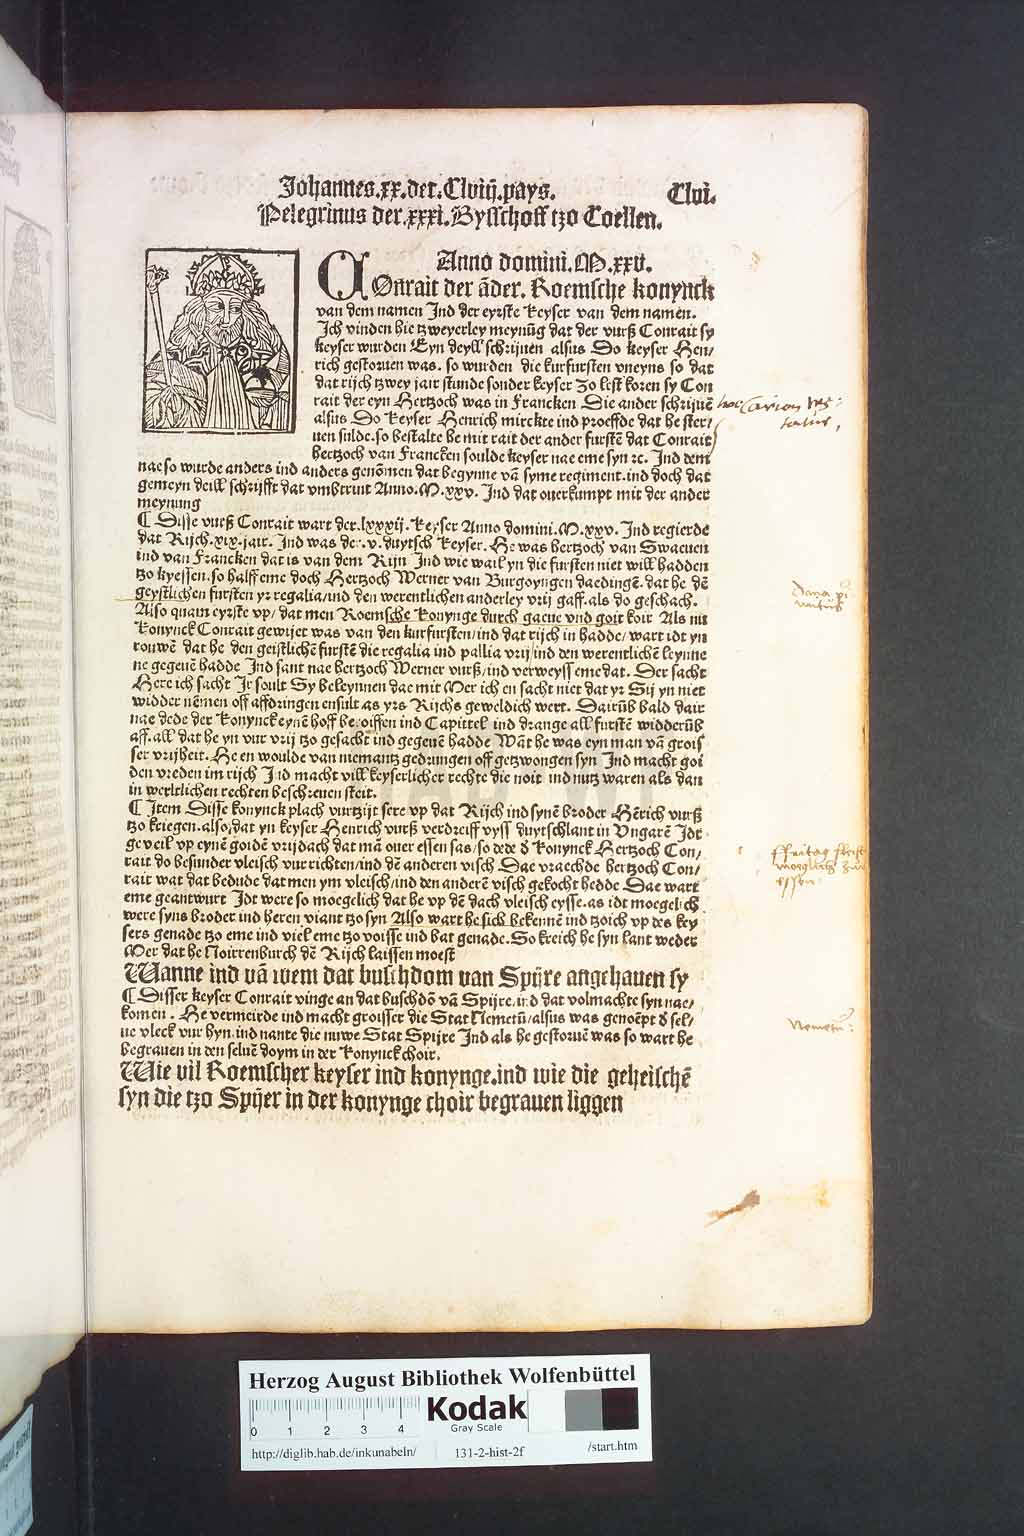 Johannes.xx.der.Clviij.pays. Clvi.
Pelegrinus der.xxxi.Bysschoff tzo Coellen.
Anno domini.M.xxv.
COnrait der āder. Roemsche konynck
van dem namen Ind der eyrste keyser van dem namen.
Ich vinden hie tzweyerley meynūg dat der vurß Conrait sy
keyser wurden Eyn deyll schrijuen alsus Do keyser Hen/
rich gestoruen was. so wurden die kurfursten vneyns so dat
dat rijch tzwey jair stunde sonder keyser Zo lest koren sy Con
rait der eyn Hertzoch was in Francken Die ander schrijuē
alsus Do keyser Henrich mirckte ind proeffde dat he ster/
uen sulde.so bestalte he mit rait der ander furstē dat Conrait
hertzoch van Francken soulde keyser nae eme syn ⁊c. Ind dem
nae so wurde anders ind anders genōmen dat begynne vā syme regiment.ind doch dat
gemeyn deill schrijfft dat vmbtrint Anno.M.xxv. Ind dat ouerkumpt mit der ander
meynung
¶ Disse vurß Conrait wart der.lxxxij. keyser Anno domini.M.xxv. Ind regierde
dat Rijch.xix.jair. Ind was der.v.duytsch keyser. He was hertzoch van Swaeuen
ind van Francken dat is van dem Rijn Ind wie wail yn die fursten niet will hadden
tzo kyessen.so halff eme doch Hertzoch Werner van Burgoyngen daedingen.dat he dē
geystlichen fursten yr regalia/ind den werentlichen anderley vrij gaff.als do geschach.
Also quam eyrste vp/dat men Roemsche konynge durch gaeue vnd goit koir Als nu
konynck Conrait gewijet was van den kurfursten/ind dat rijch in hadde/wart idt yn
rouwen dat he den geistlichē furstē die regalia ind pallia vrij/ind den werentlichē leynne
ne gegeuē hadde Ind sant nae hertzoch Werner vurß/ind verweyss eme dat. Der sacht
Here ich sacht Ir soult Sy beleynnen dae mit Mer ich en sacht niet dat yr Sij yn niet
widder nēmen off affdringen ensult as yrs Rijchs geweldich wert. Dairūb bald dair
nae dede der konynck eynē hoff beroiffen ind Capittel ind drange all furstē widderūb
aff.all dat he yn vur vrij tzo gesacht ind gegeuē hadde Wāt he was eyn man vā grois
ser vrijheit. He en woulde van niemantz gedrungen off getzwongen syn Ind macht goi
den vreden im rijch Ind macht vill keyserlicher rechte die noit ind nutz waren als dan
in werltlichen rechten beschreuen steit.
¶ Item Disse konynck plach vurtzijt sere vp dat Rijch ind synē broder Hērich vurß
tzo kriegen.also.dat yn keyser Henrich vurß verdreiff vyss duytschlant in Vngarē Idt
geveil vp eynē goidē vrijdach dat mā ouer essen sas/so dede d' konynck Hertzoch Con/
rait do besunder vleisch vur richten/ind dē anderen visch Dae vraechde hertzoch Con/
rait wat dat bedude dat men ym vleisch/ind den anderē visch gekocht hedde Dae wart
eme geantwurt Idt were so moegelich dat he vp dē dach vleisch eysse.as idt moegelich
were syns broder ind heren viant tzo syn Also wart he sich bekennē ind tzoich vp des key
sers genade tzo eme ind viel eme tzo voisse ind bat genade. So kreich he syn lant weder
Mer dat he Noirrenburch dē Rijch laissen moest
Wanne ind vā wem dat buschdom van Spijre angehauen sy
¶ Disser keyser Conrait vinge an dat buschdō vā Spijre.ind dat volmachte syn nae/
komen. He vermeirde ind macht groisser die Stat Nemetū/alsus was genoēpt d' sel/
ue vleck vur hyn.ind nante die nuwe Stat Spijre Ind als he gestoruē was so wart he
begrauen in den seluē doym in der konynck choir.
Wie vil Roemscher keyser ind konynge.ind wie die geheischē
syn die tzo Spijer in der konynge choir begrauen liggen
Nemetū:
Herzog August Bibliothek Wolfenbüttel
0 1 2 3 4
Kodak
Gray Scale
http://diglib.hab.de/inkunabeln/ 131-2-hist-2f /start.htm